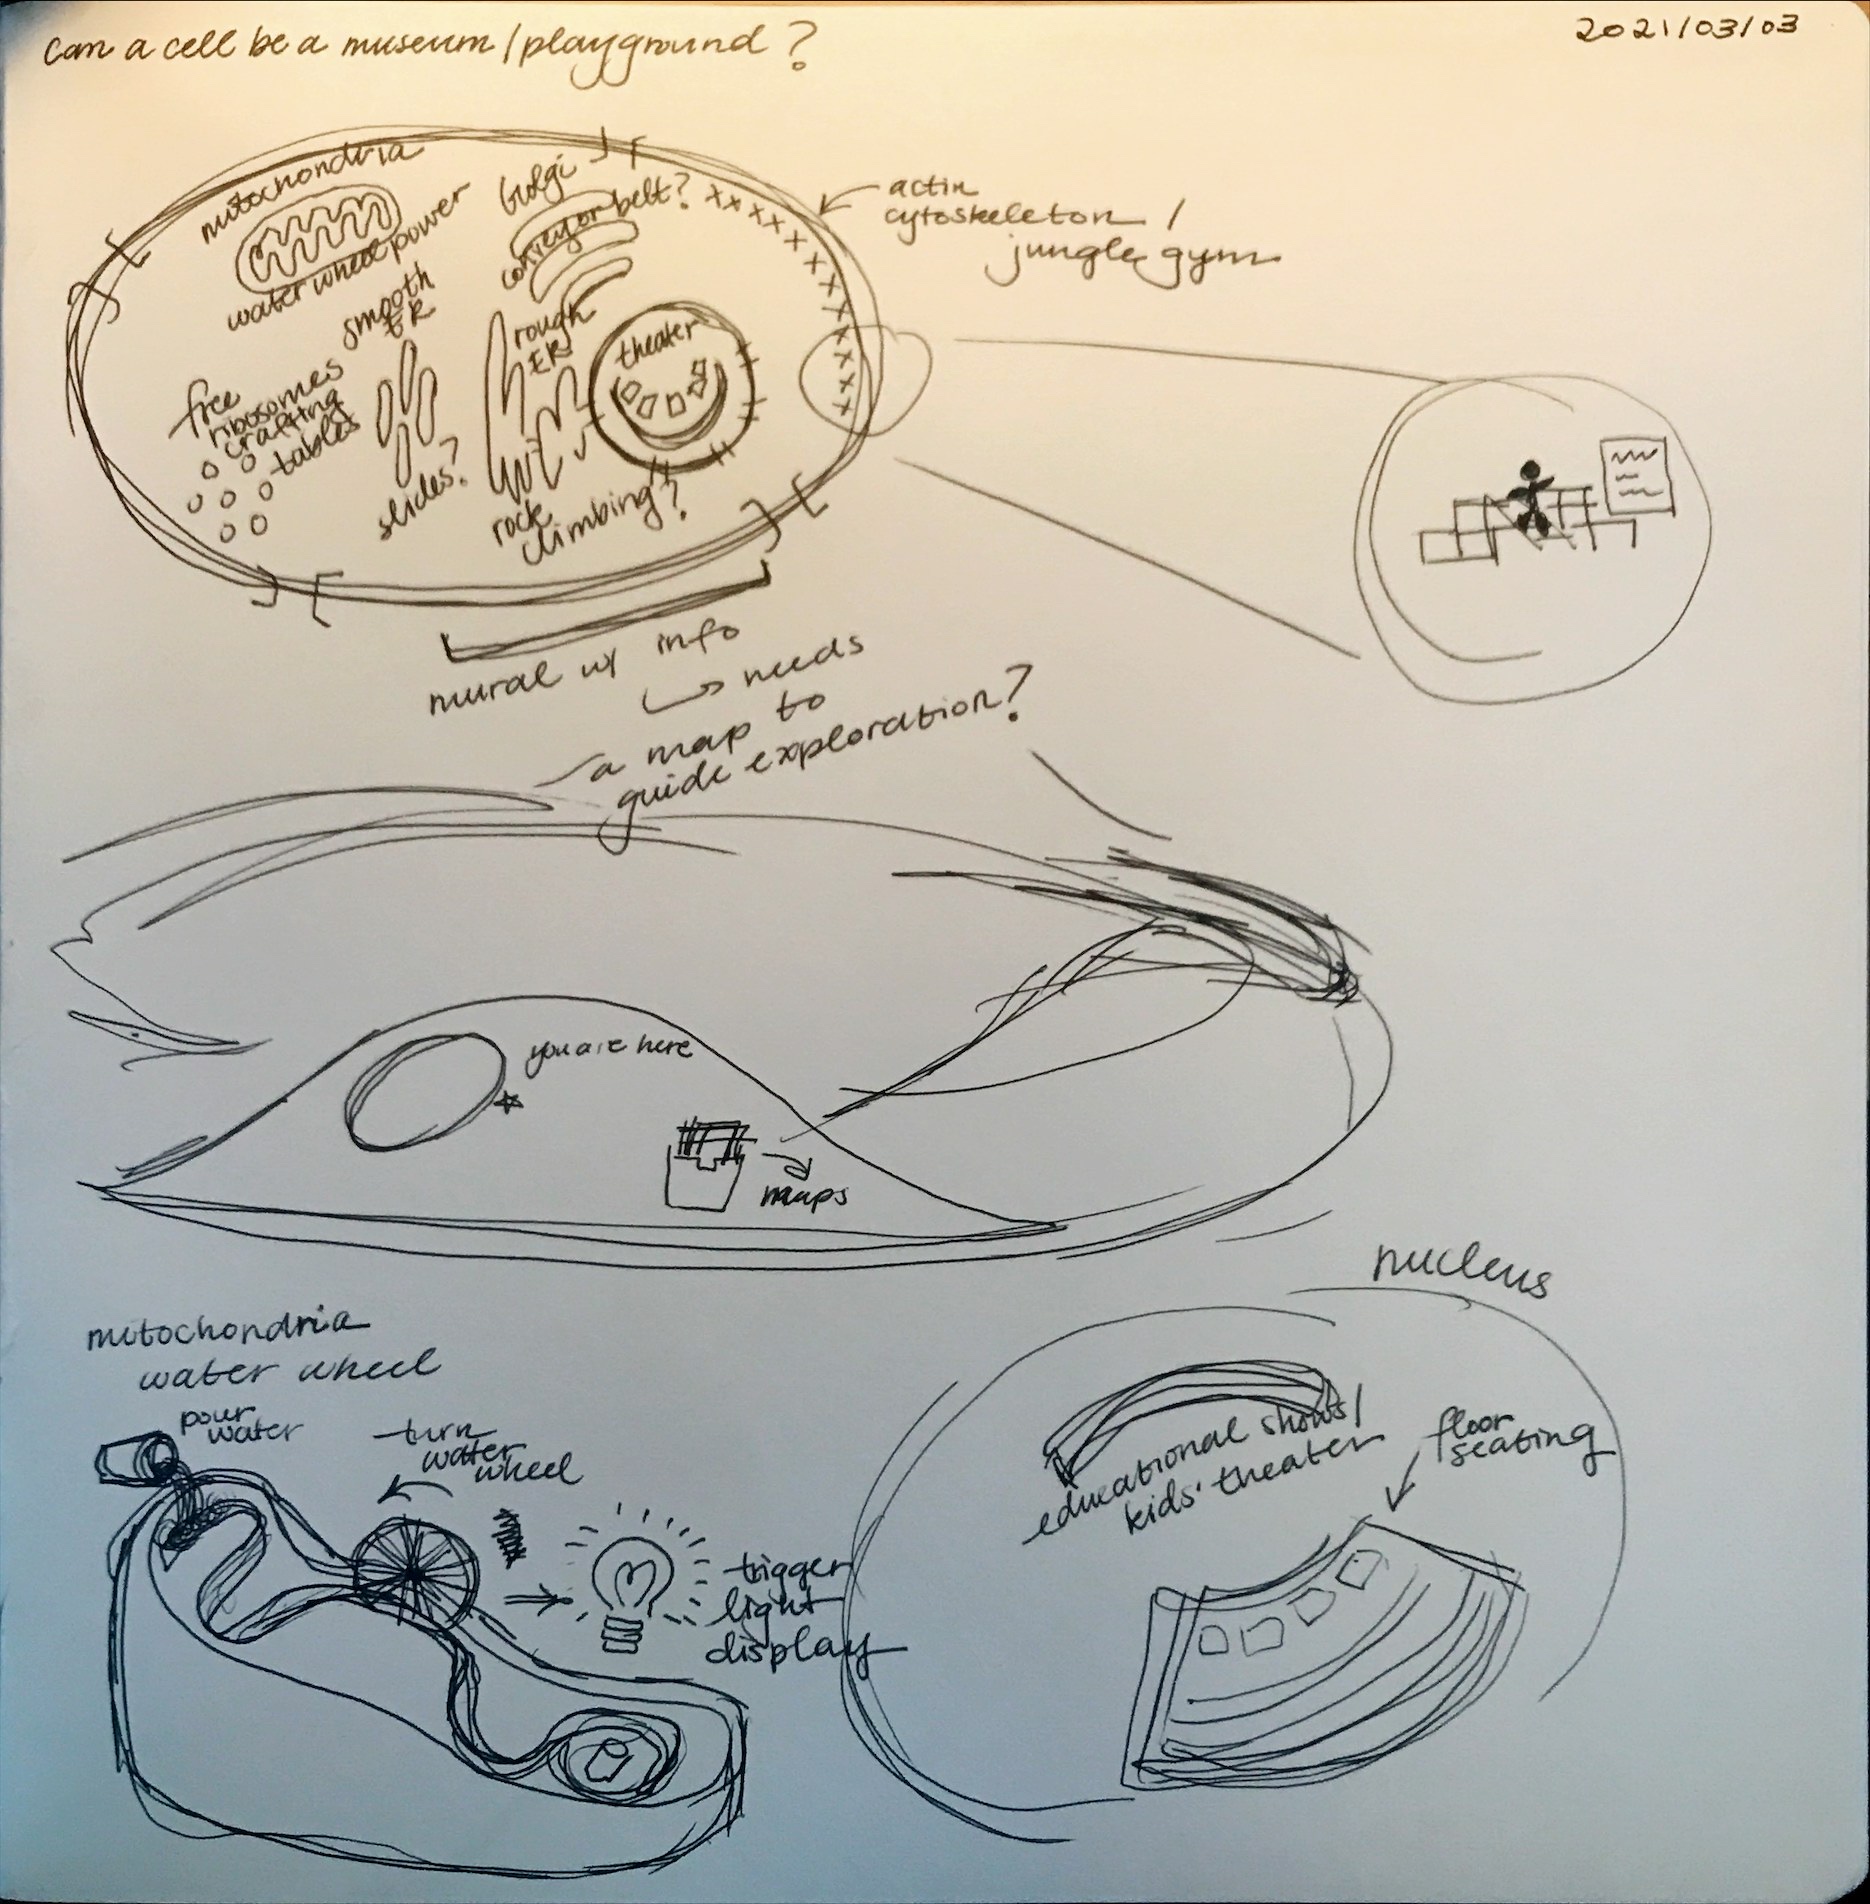 can a cell be a museum/playground?
2021/03/03
mitochondria
water wheel power
Golgi
conveyor belt?
xxxxxxxxxxxxx
actin
cytoskeleton /
jungle gym
smooth
ER
slides?
rough
ER
rock
climbing?
theater
free
ribosomes
crafting
tables
mural w/ info
needs
a map to
guide exploration?
you are here
maps
mitochondria
water wheel
pour
water
turn
water
wheel
trigger
light
display
nucleus
educational shows/
kids' theater
floor
seating